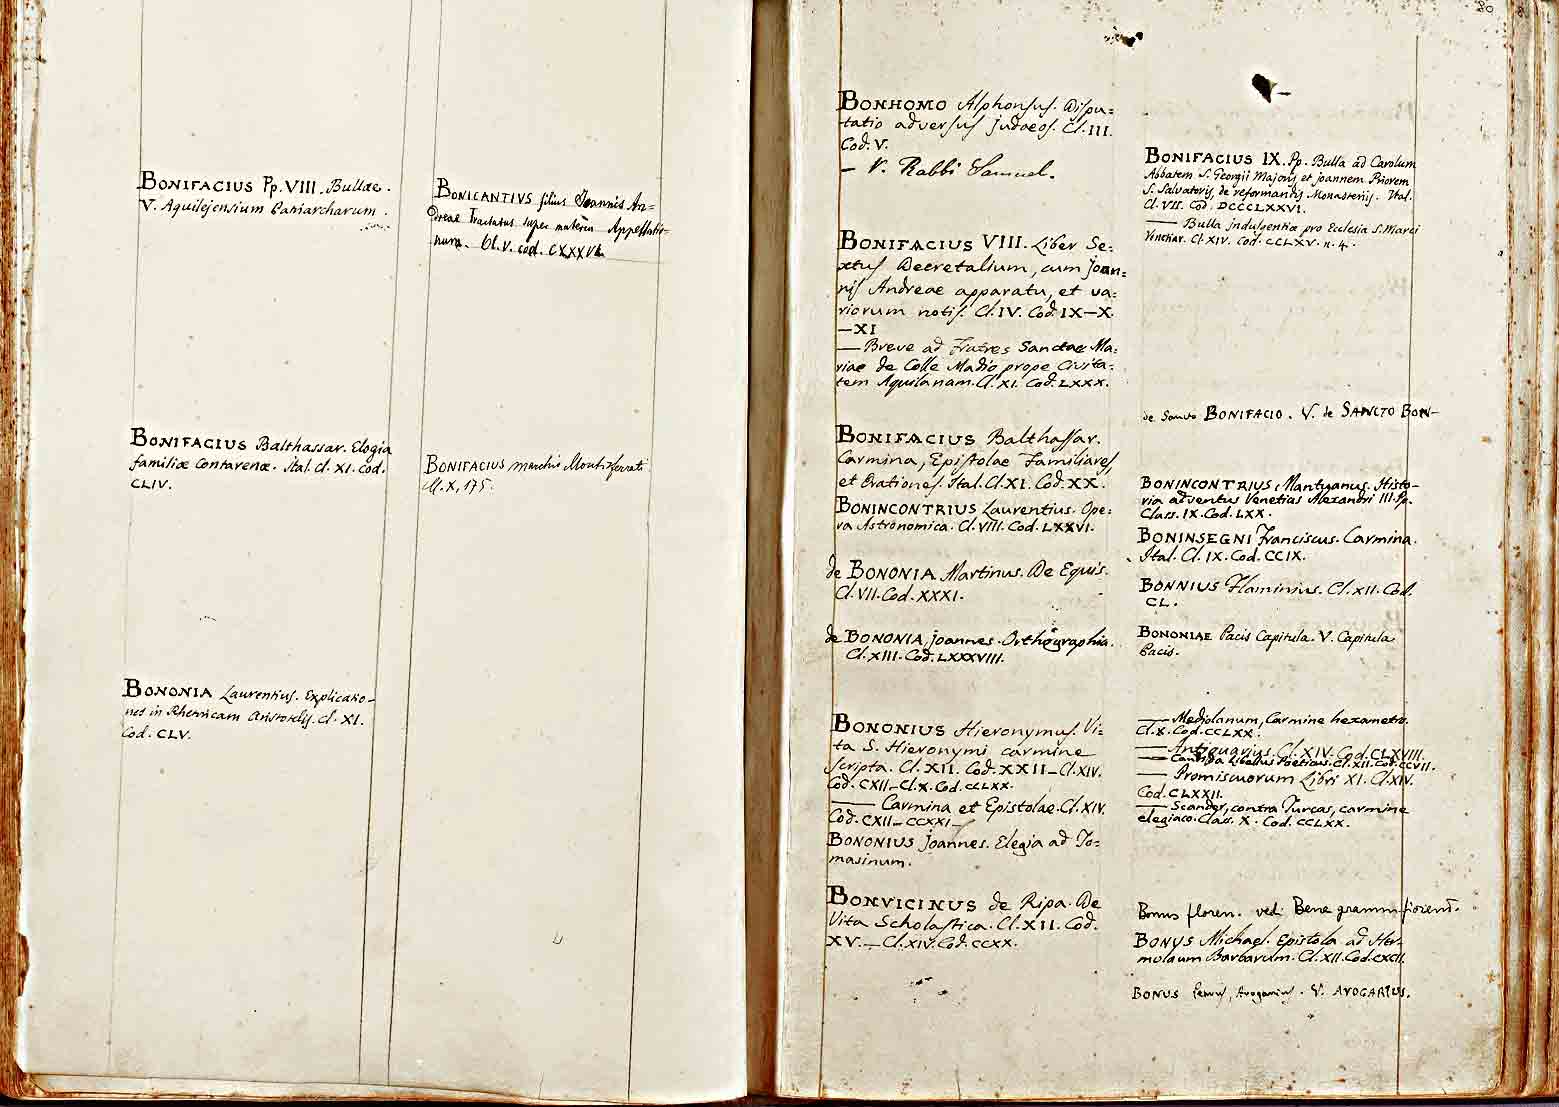 BONIFACIUS Pp. VIII. Bullae.
V. Aquilejensium Patriarcharum.
BONIFACIUS Balthassar. Elogia
familiæ Contarenæ. Ital. Cl. XI. Cod.
CLIV.
BONONIA Laurentius. Explicatio-
nes in Rhetoricam Aristotelis. Cl. XI.
Cod. CLV.
BONICANTIVS filius Joannis An-
dreae Tractatus super materia Appellatio-
num. Cl. V. cod. CXXXVI.
BONIFACIUS marchio Montisferrati
Cl. X, 175.
80
BONHOMO Alphonsus. Dispu=
tatio adversus Judaeos. Cl. III.
Cod. V.
— V. Rabbi Samuel.
BONIFACIUS VIII. Liber Se=
xtus Decretalium, cum Joan=
nis Andreae apparatu, et va=
riorum notis. Cl. IV. Cod. IX—X.
—XI
— Breve ad Fratres Sanctae Ma=
riae de Colle Madio prope Civita=
tem Aquilanam. Cl. XI. Cod. LXXX.
BONIFACIUS Balthassar.
Carmina, Epistolae Familiares,
et Orationes. Ital. Cl. XI. Cod. XX.
BONINCONTRIUS Laurentius. Ope=
ra Astronomica. Cl. VIII. Cod. LXXVI.
de BONONIA Martinus. De Equis.
Cl. VII. Cod. XXXI.
de BONONIA, Joannes. Orthographia.
Cl. XIII. Cod. LXXXVIII.
BONONIUS Hieronymus. Vi=
ta S. Hieronymi carmine
scripta. Cl. XII. Cod. XXII—Cl. XIV.
Cod. CXII—Cl. X. Cod. CCLXX.
— Carmina et Epistolae. Cl. XIV.
Cod. CXII—CCXXI—
BONONIUS Joannes. Elegia ad To=
masinum.
BONVICINUS de Ripa. De
Vita Scholastica. Cl. XII. Cod.
XV.—Cl. XIV. Cod. CCXX.
BONIFACIUS IX. Pp. Bulla ad Carolum
Abbatem S. Georgii Majoris et Joannem Priorem
S. Salvatoris, de reformandis Monasteriis. Ital.
Cl. VII. Cod. DCCCLXXVI.
— Bulla indulgentiæ pro Ecclesia S. Marci
Venetiar. Cl. XIV. Cod. CCLXV. n. 4.
de Sancto BONIFACIO. V. de SANCTO BON—
BONINCONTRIUS Mantuanus. Histo-
ria adventus Venetias Alexandri III. Pp.
Class. IX. Cod. LXX.
BONINSEGNI Franciscus. Carmina.
Ital. Cl. IX. Cod. CCIX.
BONNIUS Flaminius. Cl. XII. Cod.
CL.
BONONIAE Pacis Capitula. V. Capitula
Pacis.
— Mediolanum, Carmine hexametro.
Cl. X. Cod. CCLXX.
— Antiquarius. Cl. XIV. Cod. CLXVIII.
— Candida Libellus Poeticus. Cl. XII. Cod. CCVII.
— Promiscuorum Libri XI. Cl. XIV.
Cod. CLXXII.
— Scander, contra Turcas, carmine
elegiaco. Class. X. Cod. CCLXX.
Bonus floren. ved. Bene gramm. fiorent.
BONUS Michael. Epistola ad Her-
molaum Barbarum. Cl. XII. Cod. CXCII.
BONUS Petrus, Avogarius. V. AVOGARIUS.